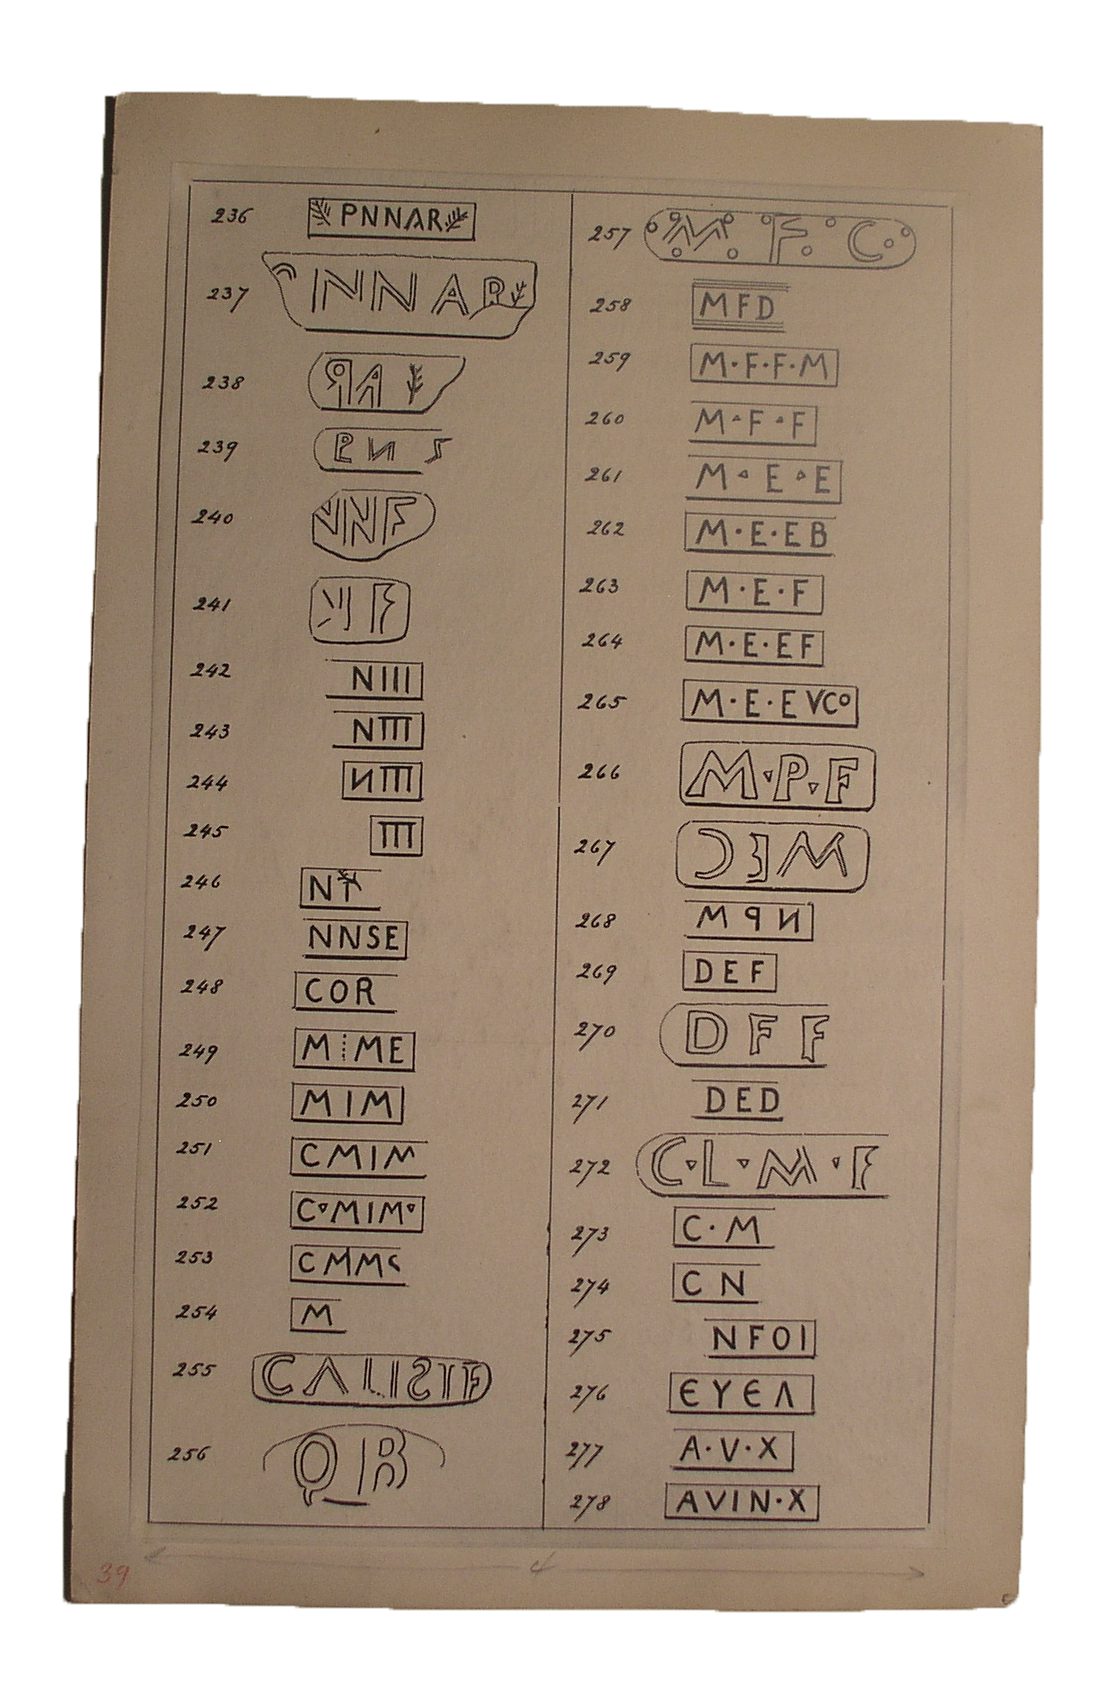 236 PNNAR
237 INNAR
238 PAR
239
240 NNF
241
242 NIII
243 NTTT
244 NTTT
245 TTT
246 NT
247 NNSE
248 COR
249 M⋮ME
250 MIM
251 CMIM
252 C▿MIM▿
253 CMMC
254 M
255 CALISTF
256 QIB
257 M F C
258 MFD
259 M·F·F·M
260 M▵F▵F
261 M▵E▵E
262 M·E·EB
263 M·E·F
264 M·E·EF
265 M·E·EVCO
266 M▿P▿F
267 CEM
268 MPN
269 DEF
270 DFF
271 DED
272 C▿L▿M▿F
273 C·M
274 CN
275 NFOI
276 ЄYЄΛ
277 A·V·X
278 AVIN·X
39